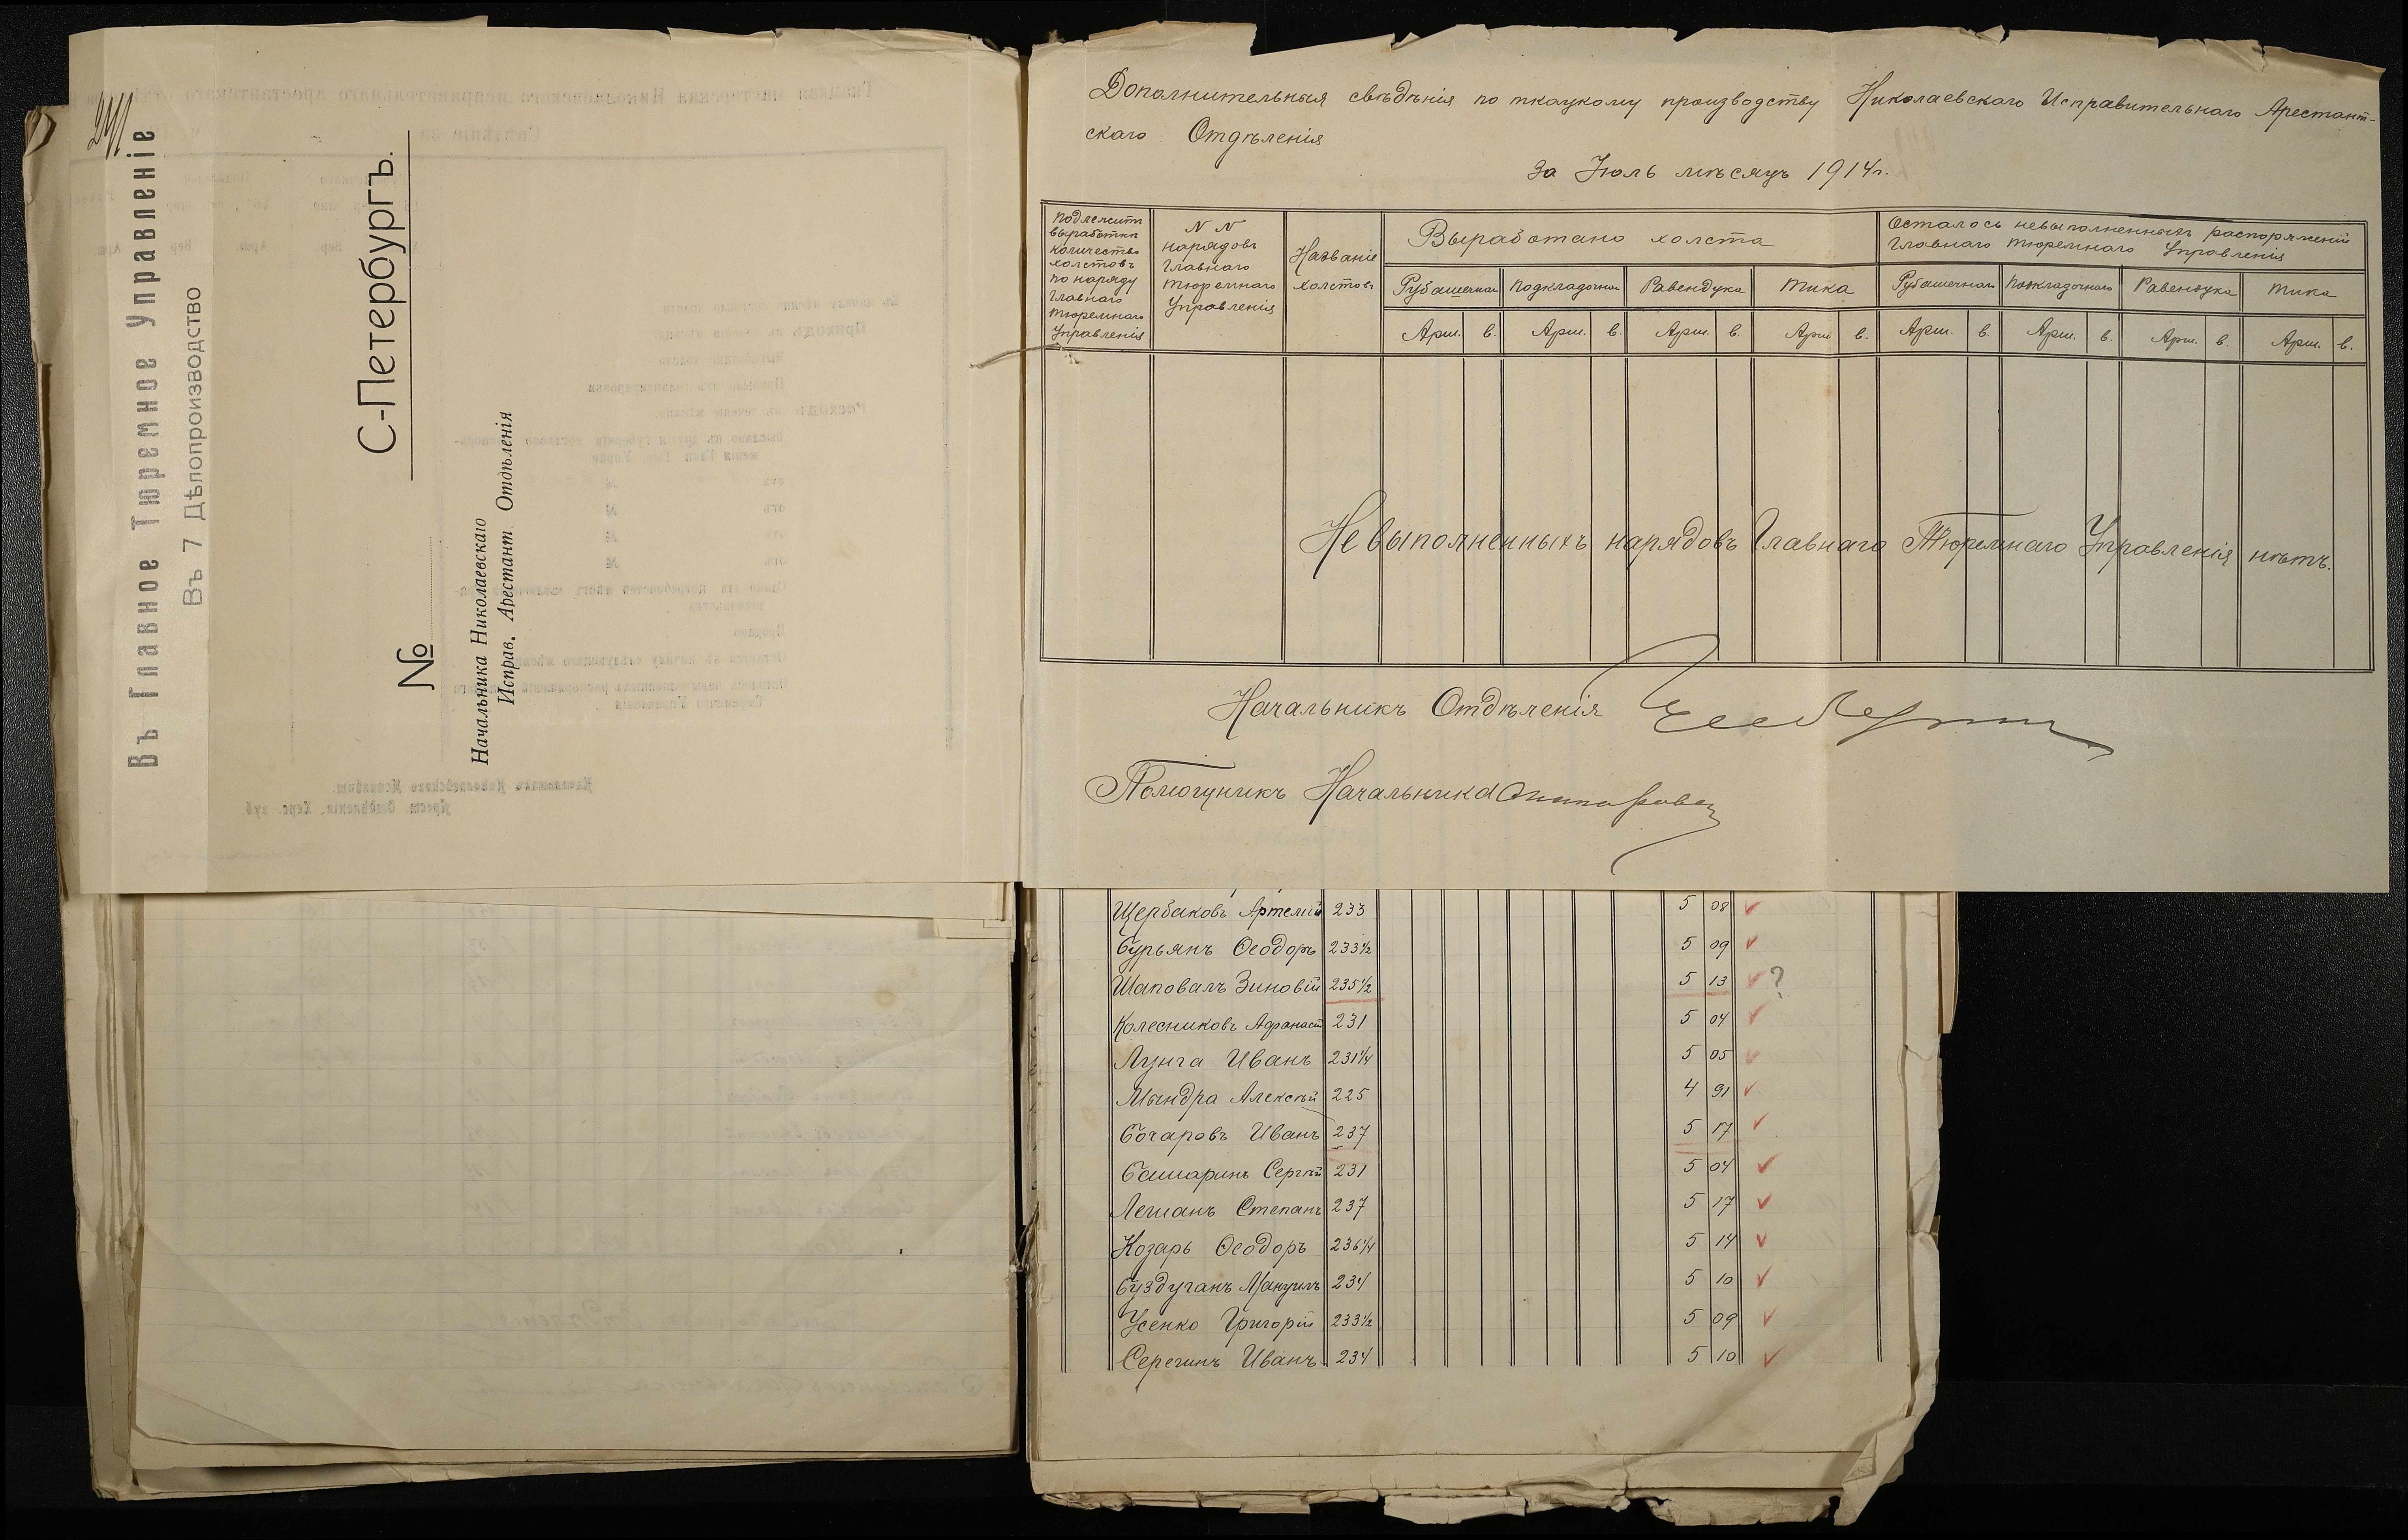 241
Въ Главное Тюремное Управленіе
Въ 7 Дѣлопроизводство
С.-Петербургъ.
№
Начальника Николаевскаго
Исправ. Арестант. Отдѣленія
Дополнительныя свѣдѣнія по ткацкому производству Николаевскаго Исправительнаго Арестант-
скаго Отдѣленія
за Іюль мѣсяцъ 1914 г.
Подлежитъ
выработкѣ
количество
холстовъ
по наряду
Главнаго
Тюремнаго
Управленія
N N
нарядовъ
Главнаго
Тюремнаго
Управленія
Названіе
холстовъ
Выработано холста
Осталось невыполненныхъ распоряженій
Главнаго Тюремнаго Управленія
Рубашечнаго Подкладочнаго Равендука Тика Рубашечнаго Подкладочнаго Равендука Тика
Арш. в. Арш. в. Арш. в. Арш. в. Арш. в. Арш. в. Арш. в. Арш. в.
Невыполненныхъ нарядовъ Главнаго Тюремнаго Управленія нѣтъ.
Начальникъ Отдѣленія
Помощникъ Начальника
Щербаковъ Артемій 233 5 08
Бурьянъ Ѳеодоръ 233½ 5 09
Шаповалъ Зиновій 235½ 5 13 ?
Колесниковъ Афанасій 231 5 04
Лунга Иванъ 231¼ 5 05
Мындра Алексѣй 225 4 91
Бочаровъ Иванъ 237 5 17
Башаринъ Сергѣй 231 5 04
Лешанъ Степанъ 237 5 17
Козарь Ѳеодоръ 236¼ 5 14
Буздуганъ Мануилъ 234 5 10
Усенко Григорій 233½ 5 09
Серегинъ Иванъ 234 5 10